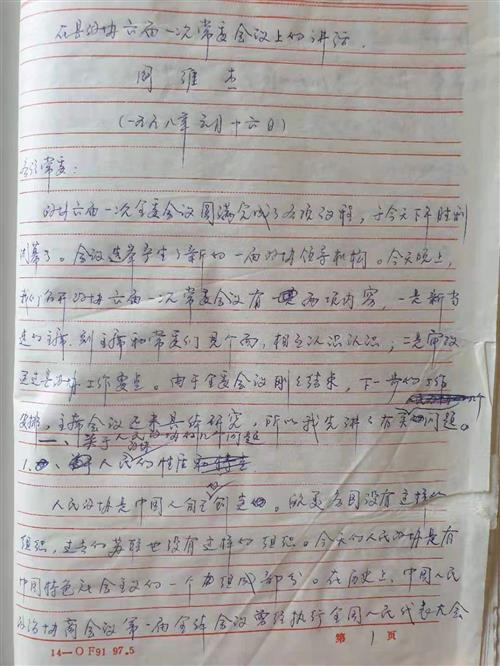 在县政协六届一次常委会议上的讲话
周维杰
(一九九八年元月十六日)
各位常委:
政协六届一次全委会议圆满完成了各项议程,于今天下午胜利
闭幕了。会议选举产生了新的一届政协领导机构。今天晚上,
我们召开政协六届一次常委会议有两项内容,一是新当
选的主席、副主席和常委们见个面,相互认识认识;二是审议
通过县政协工作要点。由于全委会议刚刚结束,下一步的工作
安排,主席会议还未具体研究,所以我先讲几个有关问题。
一、关于人民政协的几个问题
1、人民政协的性质
人民政协是中国人自己创造。欧美各国没有这样的
组织,过去的苏联也没有这样的组织。今天的人民政协是有
中国特色社会主义的一个组成部分。在历史上,中国人民
政治协商会议第一届全体会议曾经执行全国人民代表大会
14—O F91 97.5
第 1 页